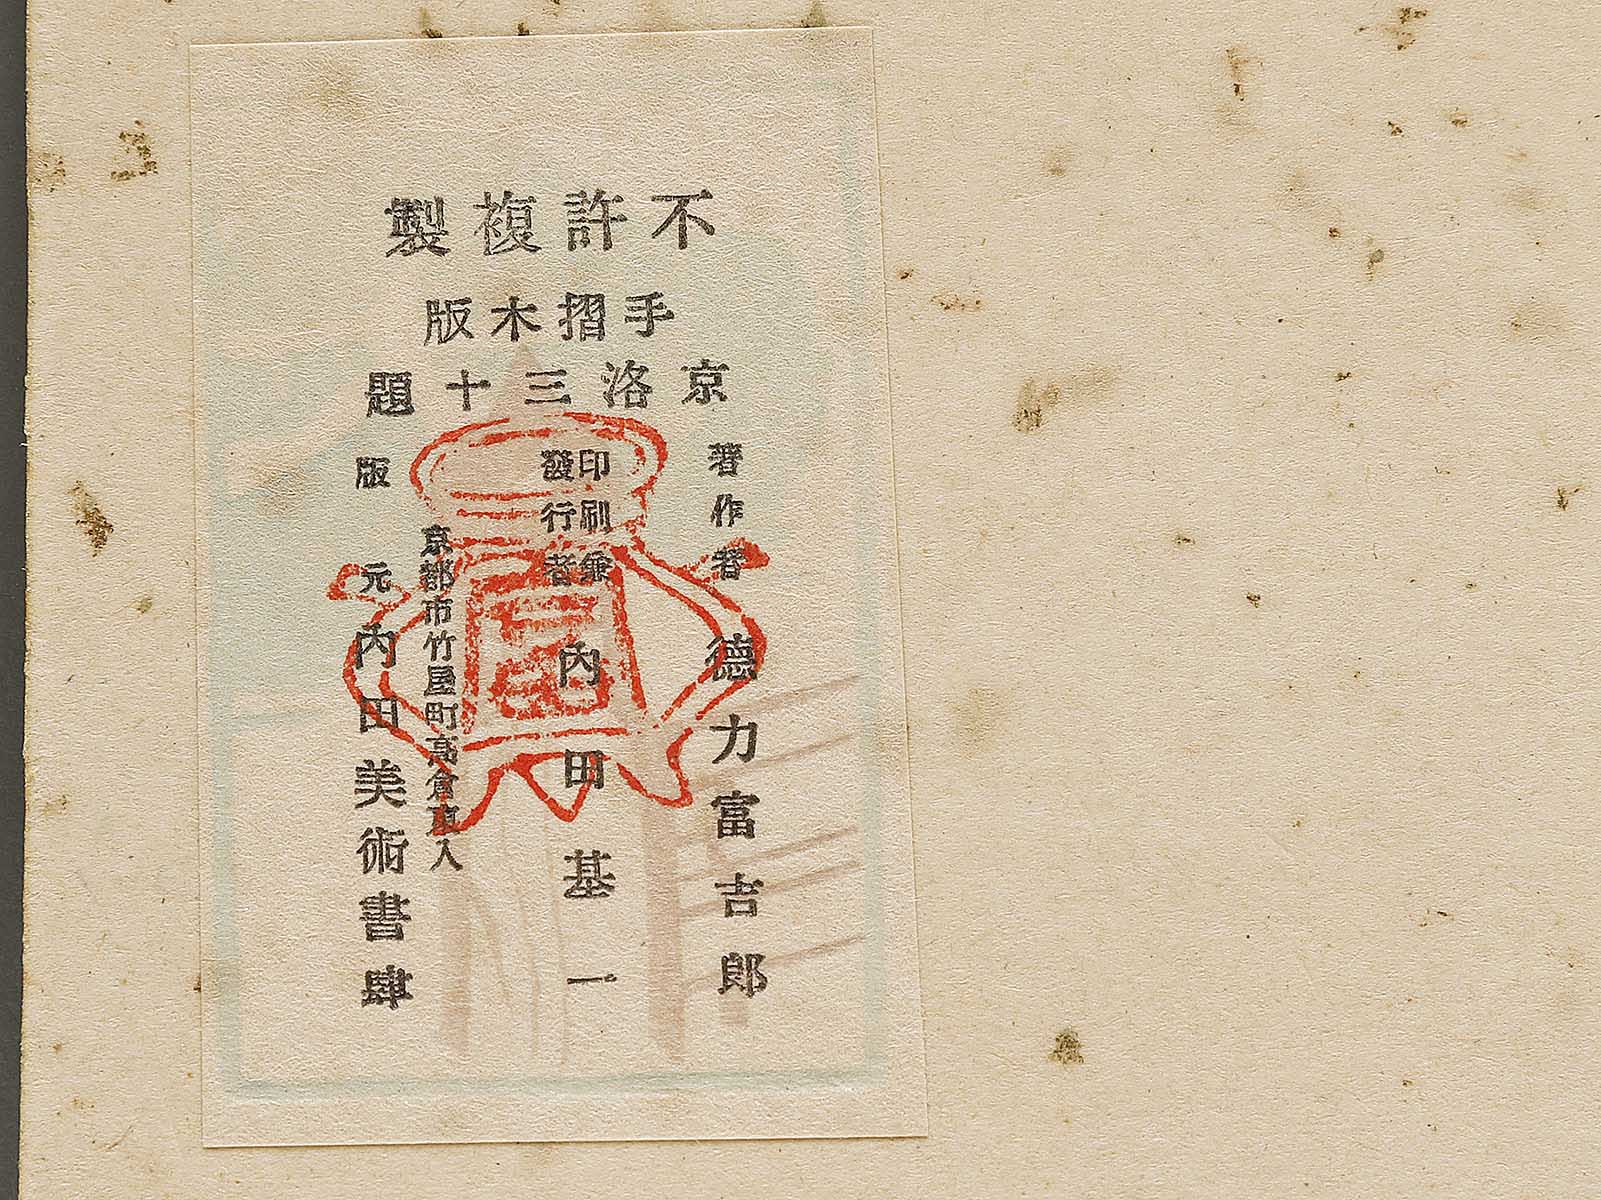 不許複製
手摺木版
京洛三十題
著作者 德力富吉郎
印刷兼
發行者 內田基一
京都市竹屋町高倉東入
版元 內田美術書肆